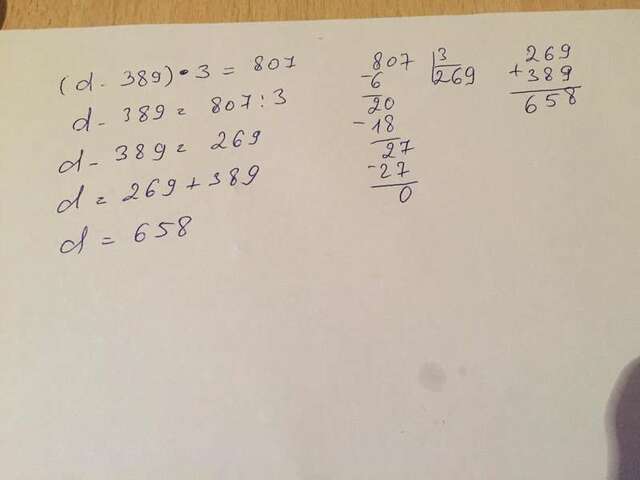 (d - 389) • 3 = 807
d - 389 = 807 : 3
d - 389 = 269
d = 269 + 389
d = 658
807 | 3
- 6 269
20
- 18
27
- 27
0
269
+ 389
658